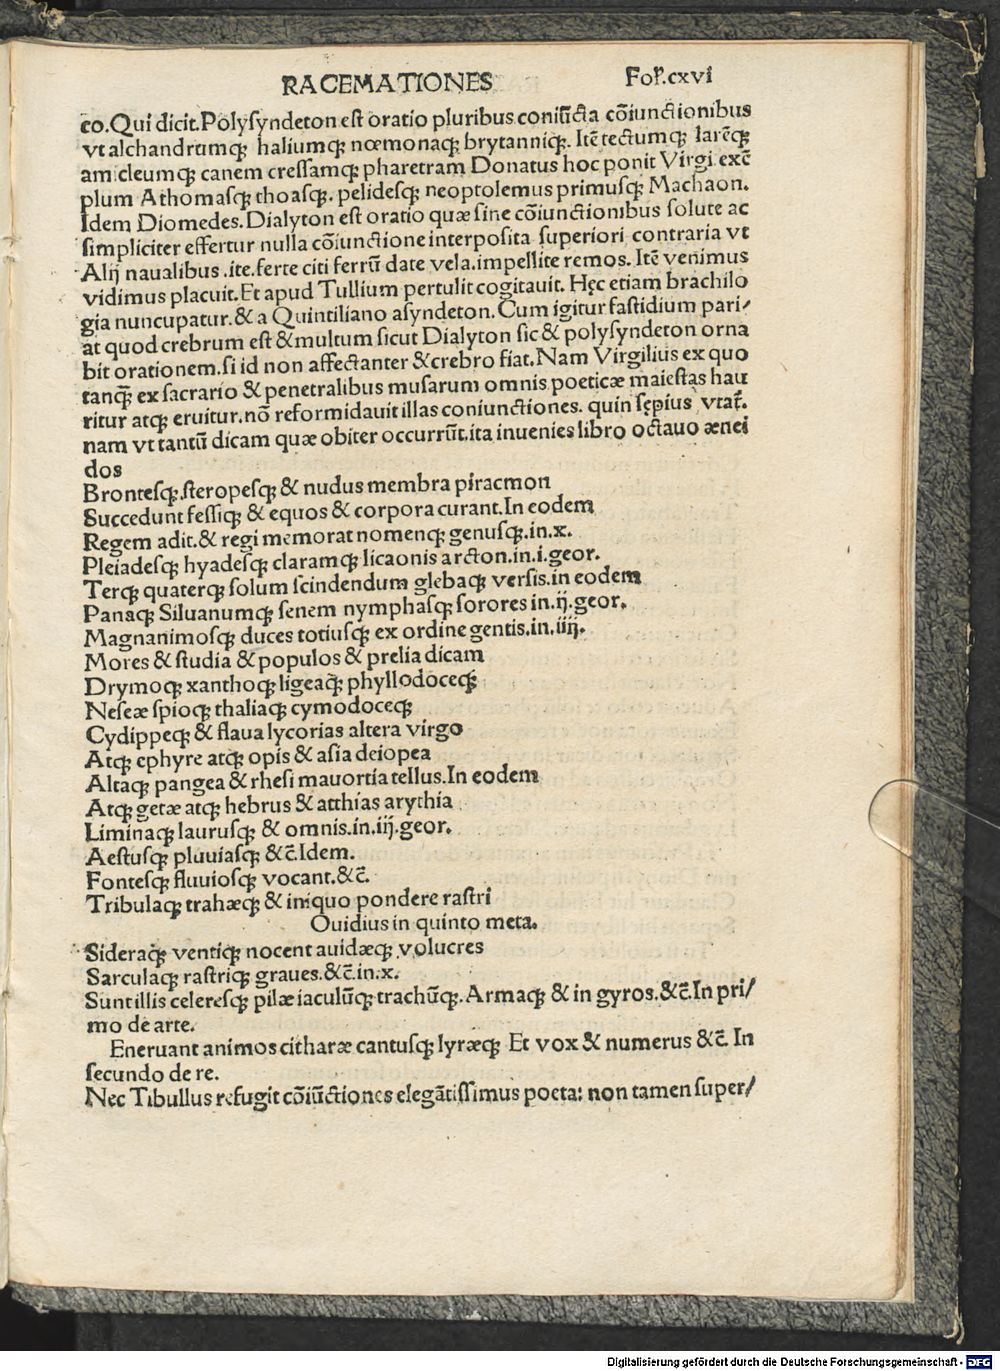 RACEMATIONES Foł.cxvi
co.Qui dicit.Polysyndeton est oratio pluribus coniūcta cōiunctionibus
vt alchandrumqꝫ haliumqꝫ nœmonaqꝫ brytanniqꝫ. Itē tectumqꝫ larēqꝫ
amicleumqꝫ canem cressamqꝫ pharetram Donatus hoc ponit Virgi exē
plum Athomasqꝫ thoasqꝫ. pelidesqꝫ neoptolemus primusqꝫ Machaon.
Idem Diomedes.Dialyton est oratio quæ sine cōiunctionibus solute ac
simpliciter effertur nulla cōiunctione interposita superiori contraria vt
Alij naualibus .ite.ferte citi ferrū date vela.impellite remos. Itē venimus
vidimus placuit.Et apud Tullium pertulit cogitauit. Hęc etiam brachilo
gia nuncupatur.& a Quintiliano asyndeton.Cum igitur fastidium pari/
at quod crebrum est & multum sicut Dialyton sic & polysyndeton orna
bit orationem.si id non affectanter & crebro fiat.Nam Virgilius ex quo
tanqꝫ̄ ex sacrario & penetralibus musarum omnis poeticæ maiestas hau
ritur atqꝫ eruitur.nō reformidauit illas coniunctiones. quin sępius vtat̄.
nam vt tantū dicam quæ obiter occurrūt.ita inuenies libro octauo ænei
dos
Brontesqꝫ.steropesqꝫ & nudus membra piracmon
Succedunt fessiqꝫ & equos & corpora curant.In eodem
Regem adit.& regi memorat nomenqꝫ genusqꝫ.in.x.
Pleiadesqꝫ hyadesqꝫ claramqꝫ licaonis arcton.in.i.geor.
Terqꝫ quaterqꝫ solum scindendum glebaqꝫ versis.in eodem
Panaqꝫ Siluanumqꝫ senem nymphasqꝫ sorores in.ij.geor.
Magnanimosqꝫ duces totiusqꝫ ex ordine gentis.in.iiij.
Mores & studia & populos & prelia dicam
Drymoqꝫ xanthoqꝫ ligeaqꝫ̄ phyllodoceqꝫ
Neseæ spioqꝫ thaliaqꝫ cymodoceqꝫ
Cydippeqꝫ & flaua lycorias altera virgo
Atqꝫ ephyre atqꝫ opis & asia deiopea
Altaqꝫ pangea & rhesi mauortia tellus.In eodem
Atqꝫ getæ atqꝫ hebrus & atthias arythia
Liminaqꝫ laurusqꝫ & omnis.in.iij.geor.
Aestusqꝫ pluuiasqꝫ &c̄.Idem.
Fontesqꝫ fluuiosqꝫ vocant.&c̄.
Tribulaqꝫ trahæqꝫ & iniquo pondere rastri
Ouidius in quinto meta.
Sideraqꝫ ventiqꝫ nocent auidæqꝫ volucres
Sarculaqꝫ rastriqꝫ graues.&c̄.in.x.
Sunt illis celeresqꝫ pilæ iaculūqꝫ trachūqꝫ.Armaqꝫ & in gyros.&c̄.In pri/
mo de arte.
Eneruant animos citharæ cantusqꝫ lyræqꝫ Et vox & numerus &c̄. In
secundo de re.
Nec Tibullus refugit cōiūctiones elegātissimus poeta: non tamen super/
Digitalisierung gefördert durch die Deutsche Forschungsgemeinschaft - DFG